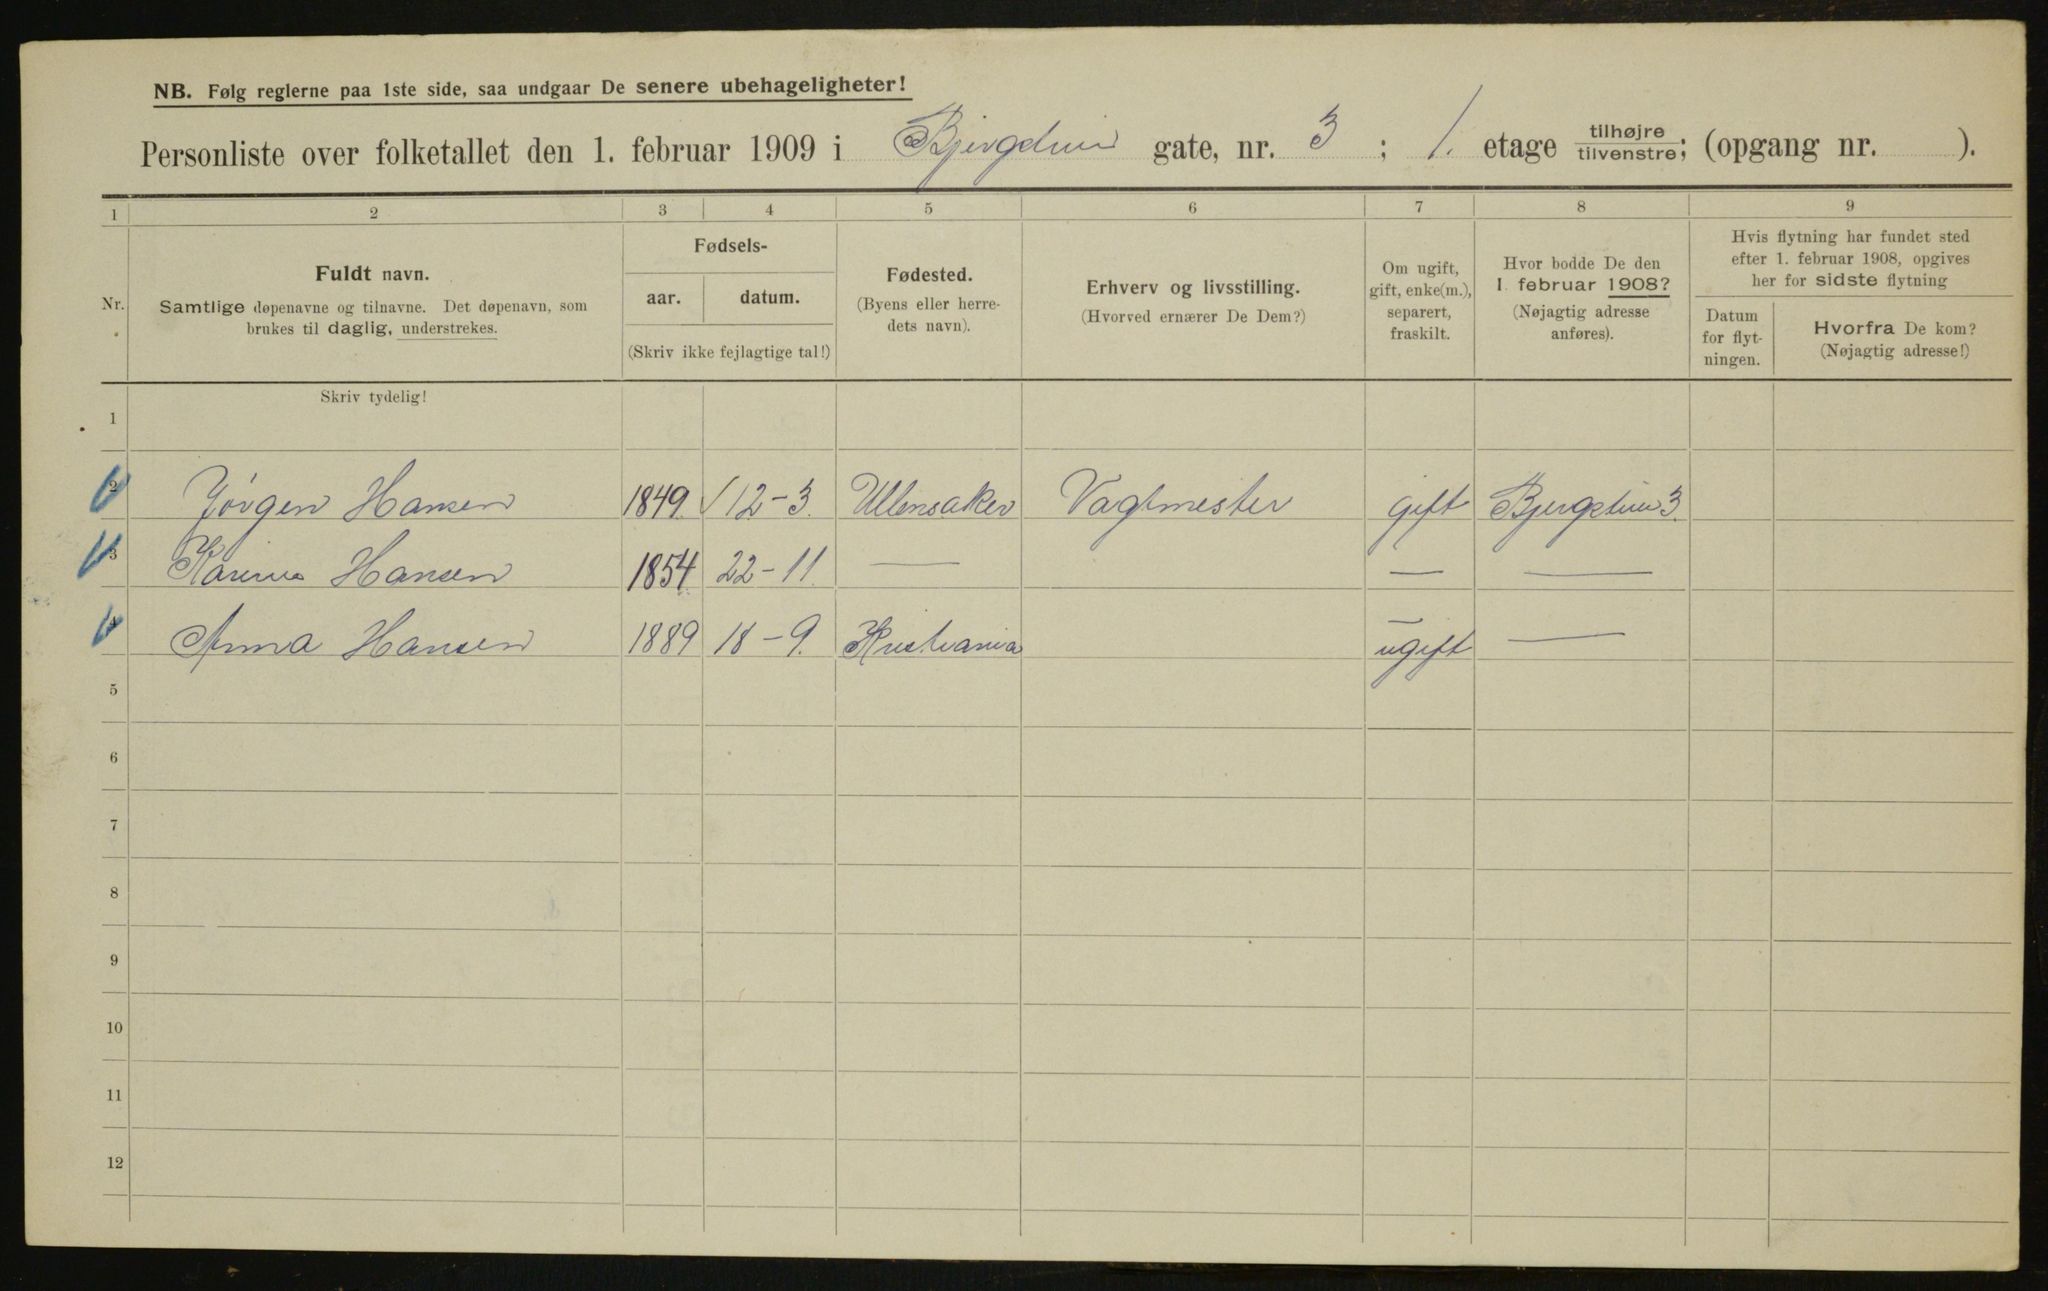 NB. Følg reglerne paa 1ste side, saa undgaar De senere ubehageligheter!
Personliste over folketallet den 1. februar 1909 i gate, nr. 3 ; 1. etage tilhøjre tilvenstre; (opgang nr. ).
1 2 3 4 5 6 7 8 9
Nr.
Fuldt navn.
Samtlige døpenavne og tilnavne. Det døpenavn, som
brukes til daglig, understrekes.
Fødsels-
aar. datum.
(Skriv ikke fejlagtige tal!)
Fødested.
(Byens eller herre-
dets navn).
Erhverv og livsstilling.
(Hvorved ernærer De Dem?)
Om ugift,
gift, enke(m.),
separert,
fraskilt.
Hvor bodde De den
1. februar 1908?
(Nøjagtig adresse
anføres).
Hvis flytning har fundet sted
efter 1. februar 1908, opgives
her for sidste flytning
Datum
for flyt-
ningen.
Hvorfra De kom?
(Nøjagtig adresse!)
Skriv tydelig!
1
2 Jörgen Hansen 1849 12-3. Ullensaker Vagtmester gift 3.
3 Karine Hansen 1854 22-11. — — —
4 Anna Hansen 1889 18-9. Kristiania ugift —
5
6
7
8
9
10
11
12